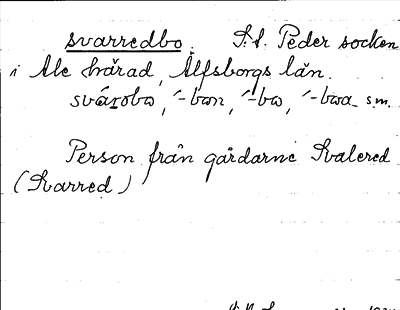 svarredbo. S:t Peder socken
i Ale härad, Älfsborgs län.
svárobω, ´-bωn, ´-bω, ´-bωa s.m.
Person från gårdarne Svalered
(Svarred)